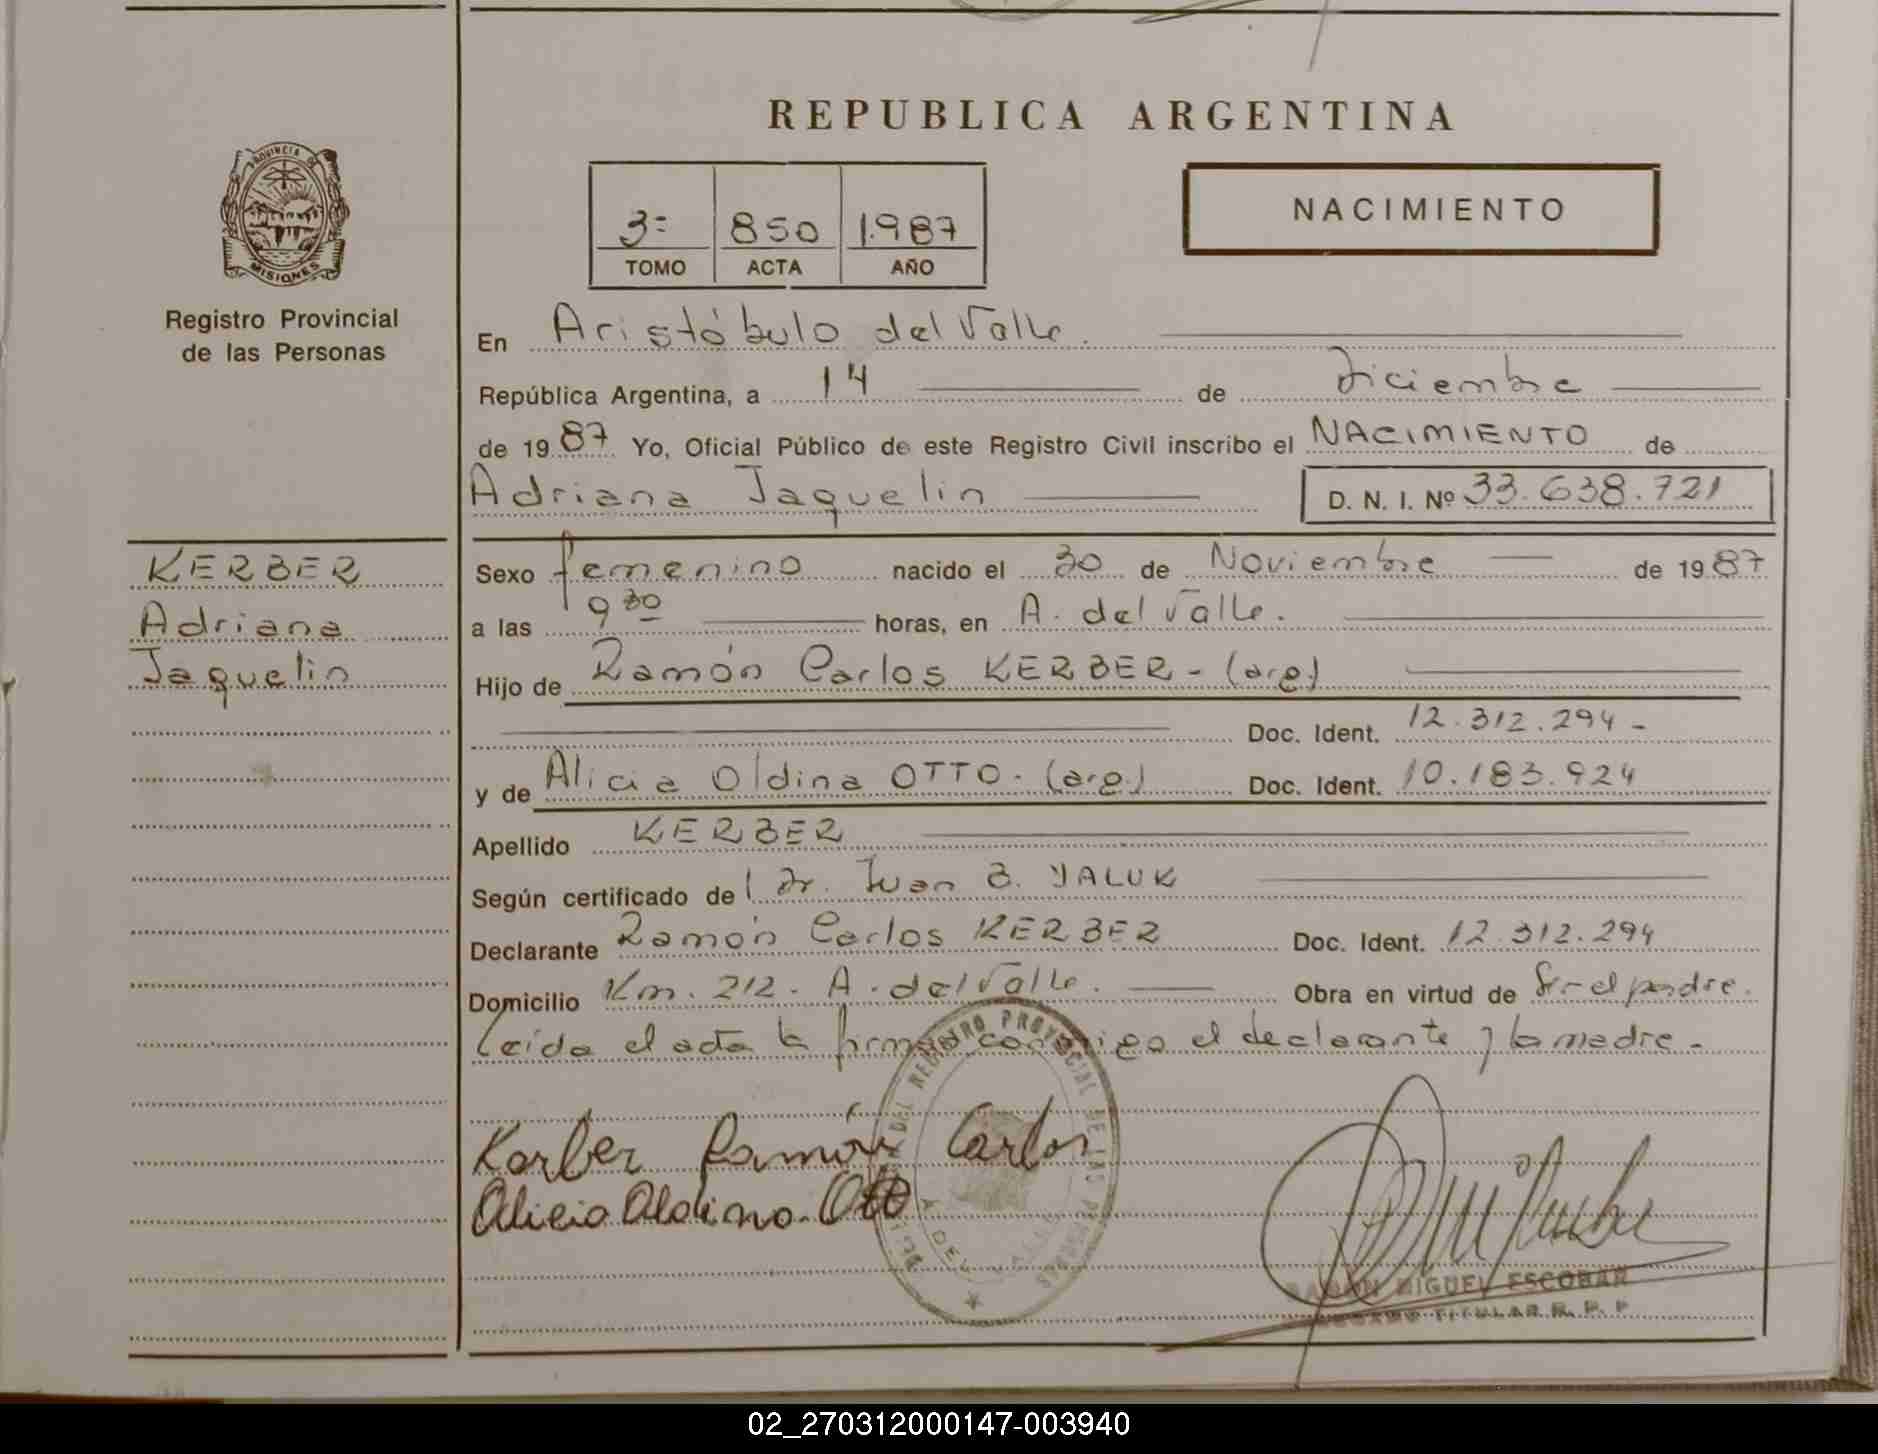 REPUBLICA ARGENTINA
PROVINCIA DE
MISIONES
Registro Provincial
de las Personas
3º 850 1.987
TOMO ACTA AÑO
NACIMIENTO
En Aristóbulo del Valle.
República Argentina, a 14 de Diciembre
de 1987 Yo, Oficial Público de este Registro Civil inscribo el NACIMIENTO de
Adriana Jaquelin D. N. I. Nº 33.638.721
KERBER
Adriana
Jaquelin
Sexo femenino nacido el 30 de Noviembre de 1987
a las 9 30 horas, en A. del Valle.
Hijo de Ramón Carlos KERBER - (arg.)
Doc. Ident. 12.312.294 -
y de Alicia Oldina OTTO. (arg.) Doc. Ident. 10.183.924
Apellido KERBER
Según certificado de l Dr. Juan B. YALUK
Declarante Ramón Carlos KERBER Doc. Ident. 12.312.294
Domicilio Km. 212. A. del Valle. Obra en virtud de Ser el padre.
Leída el acta la firman conmigo el declarante y la madre.-
REGISTRO PROVINCIAL DE LAS PERSONAS
A. DEL VALLE
Kerber Ramón Carlos
Alicia Aldina Otto
RAMON MIGUEL ESCOBAR
TITULAR R. P. P
02_270312000147-003940